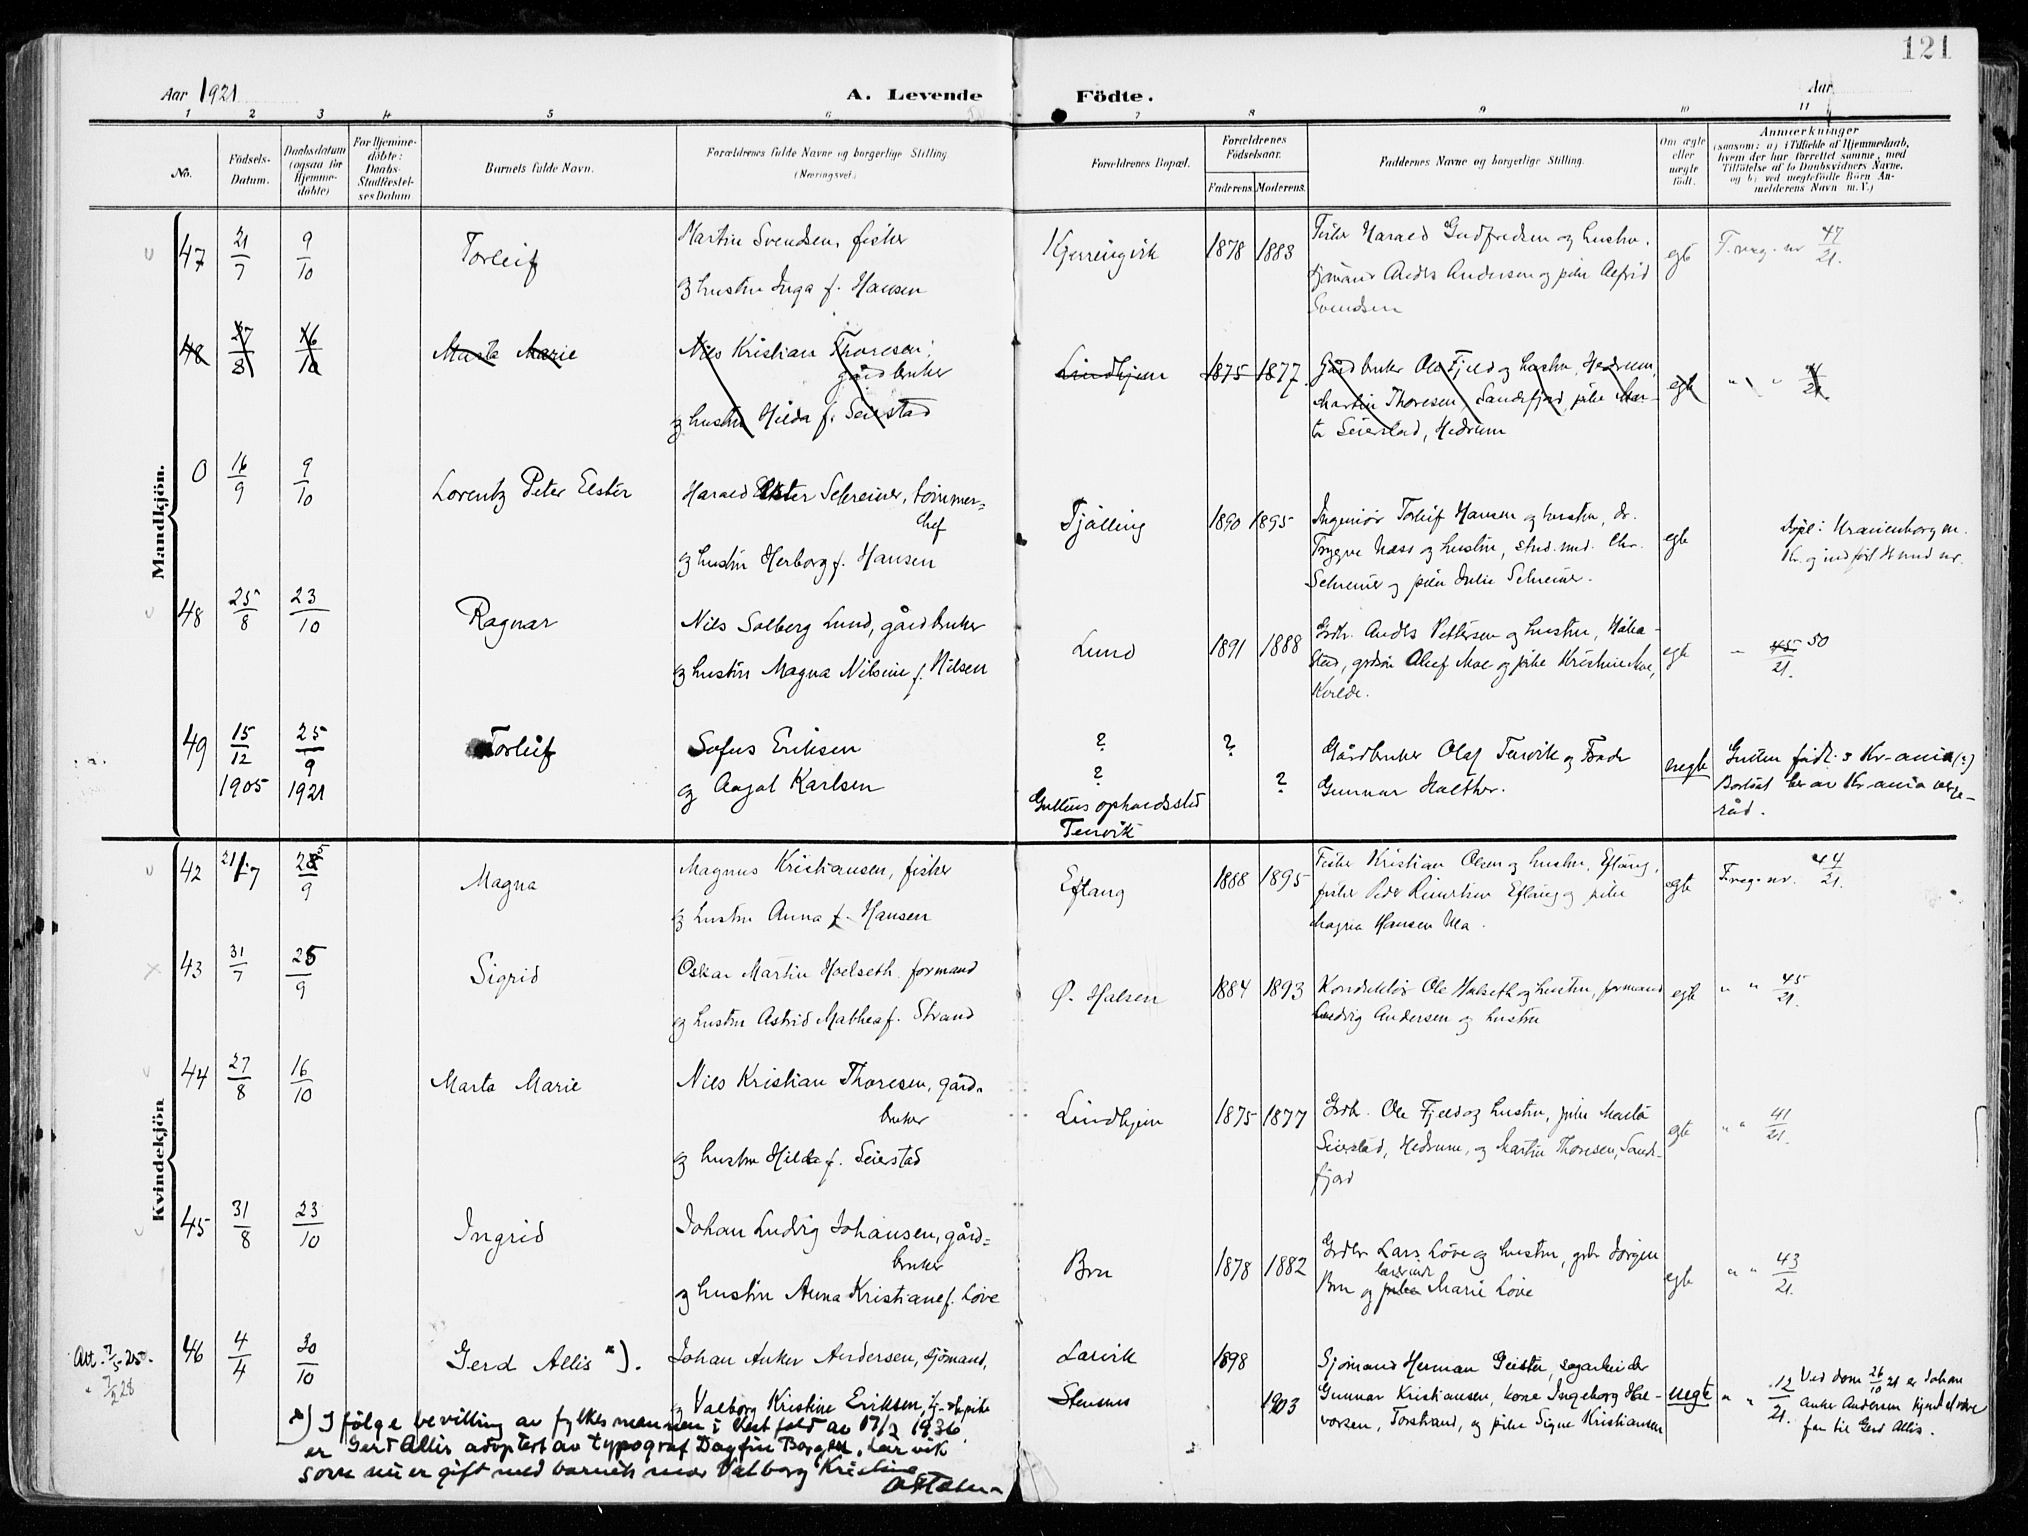 121
Aar 1921
A. Levende
Födte.
Aar
1 2 3 4 5 6 7 8 9 10 11
No.
Födsels-
Datum.
Daabsdatum
(ogsaa for
Hjemme-
döbte)
For Hjemme-
döbte:
Daabs-
Stadfæstel-
ses Datum
Barnets fulde Navn.
Forældrenes fulde Navne og borgerlige Stilling
(Næringsvei.)
Forældrenes Bopæl.
Forældrenes
Födselsaar.
Faderens. Moderens.
Faddernes Navne og borgerlige Stilling.
Om ægte
eller
uægte
født.
Anmærkninger
(saasom: a) i Tilfælde af Hjemmedaab,
hvem der har forrettet samme, med
Tilföielse af to Daabsvidners Navne.
og b) ved uægtefödte Börn An-
melderens Navn m. V.)
Mandkjön.
47 21/7 9/10 Torleif
Martin Svendsen, fisker
og hustru Inga f. Hansen
Kjerringvik 1878 1883
Fisker Harald Gudfredsen og hustru,
sjømand Anders Andersen og pike Alfrid
Svendsen
egte
F. reg. nr 47/21.
48 27/8 16/10 Marta Marie
Nils Kristian Thoresen,
gårdbruker
og hustru Hilda f. Seierstad
Lindhjem 1875 1877.
Gårdbruker Ole Fjeld og hustru, Hedrum,
Martin Thoresen, Sandefjord, pike Mar-
ta Seierstad, Hedrum
egte
" " 41/21.
0 16/9 9/10 Lorentz Peter Elster
Harald Elster Schreiner, tømmer-
chef
og hustru Herborg f. Hansen
Tjølling 1890 1895
Ingeniør Torleif Hansen og hustru, dr.
Trygve Næss og hustru, stud. med. Chr.
Schreiner og pike Julie Schreiner.
egte
Dpt i Uranienborg m.
Kr. og indført der med nr.
48 25/8 23/10 Ragnar
Nils Solberg Lund, gårdbruker
og hustru Magna Nilsine f. Nilsen
Lund 1891 1888
Grdbr. Anders Pettersen og hustru,
Oluf Moe og pike Kristine Moe,
egte
" 45/21. 50
49 15/12 1905 25/9 1921 Torleif
Sofus Eriksen
og Aagot Karlsen
? ? ? ?
Guttens opholdssted
Tenvik
Gårdbruker Olaf Tenvik og
Gunnar Holther.
uegte
Gutten født i Kr-ania (?)
Bortsat her av Kr-ania verge-
råd.
Kvindekjön
42 21/7 25/9 Magna
Magnus Kristiansen, fisker
og hustru Anna f. Hansen
Eftang 1888 1895
Fisker Kristian Olsen og hustru, Eftang,
fisker Peder Eftang og pike
Magna Hansen Ula.
egte
F. reg. nr. 44/21.
43 31/7 25/9 Sigrid
Oskar Martin Holseth formand
og hustru Astrid Mathea f. Strand
Ø. Halsen 1884 1893
Konduktør Ole Holseth og hustru, formand
Ludvig Andersen og hustru
egte
" " 45/21.
44 27/8 16/10 Marta Marie
Nils Kristian Thoresen, gård-
bruker
og hustru Hilda f. Seierstad
Lindhjem 1875 1877
Grdbr. Ole Fjeld og hustru, pike Marta
Seierstad, Hedrum, og Martin Thoresen, Sande-
fjord
egte
" " 41/21.
45 31/8 23/10 Ingrid
Johan Ludvig Johansen, gård-
bruker
og hustru Anna Kristiane f. Løve
Bru 1878 1882
Grdbr Lars Løve og hustru, grdbr Jørgen
Bru og pike lærerinde Marie Løve
egte
" " 43/21.
Att. 7/5-25.
46 4/4 30/10 Gerd Allis *).
Johan Anker Andersen, sjømand,
og Valborg Kristine Eriksen,
Larvik
1898 1903
Sjømand Herman Geister, sagarbeider
Gunnar Kristiansen, kone Ingeborg Hal-
vorsen, Torstrand, og pike Signe Kristiansen
uegte
" " 12/21.
Ved dom 26/10 21 er Johan
Anker Andersen kjendt at være
far til Gerd Allis.
*) I følge bevilling av fylkesmannen i Vestfold av 17/2 1936
er Gerd Allis adoptert av typograf Dagfin Borgen, Larvik
som nu er gift med barnets mor Valborg Kristine